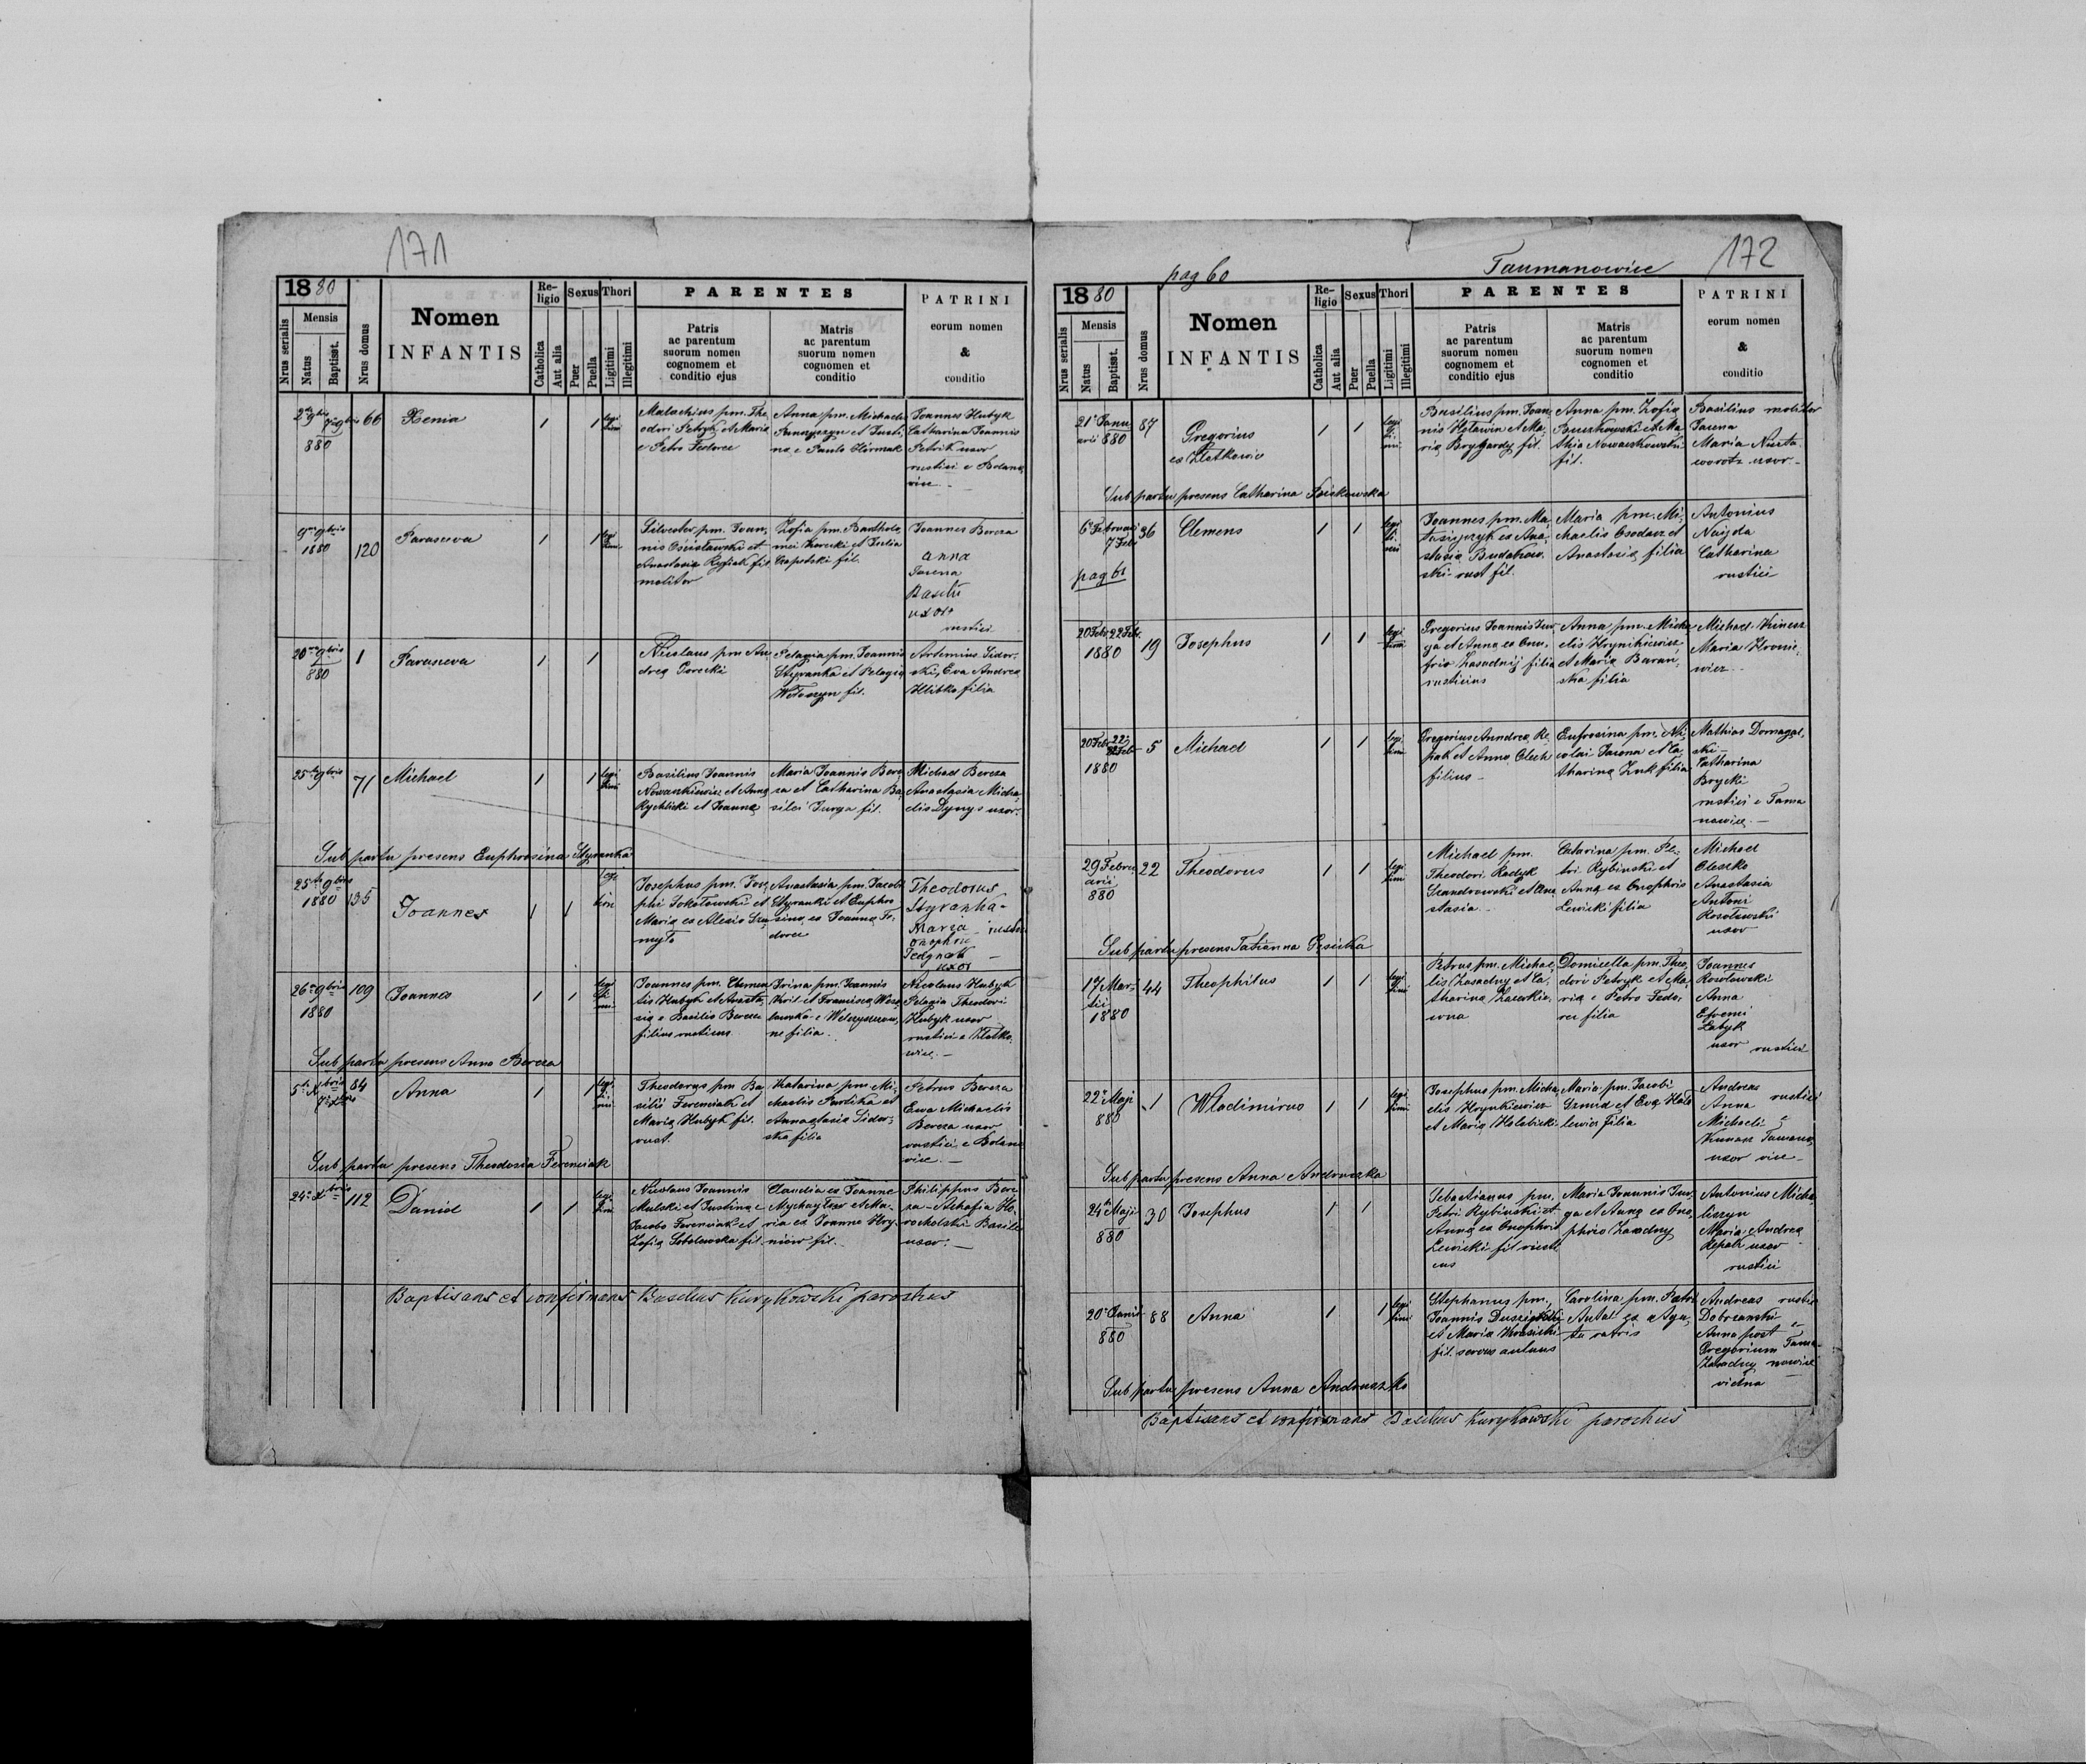 171
1880
Nrus serialis
Mensis
Natus
Baptisat.
Nrus domus
Nomen
INFANTIS
Re-
ligio
Catholica
Aut alia
Sexus
Puer
Puella
Thori
Ligitimi
Illegitimi
PARENTES
Patris
ac parentum
suorum nomen
cognomem et
conditio ejus
Matris
ac parentum
suorum nomen
cognomen et
conditio
PATRINI
eorum nomen
&
conditio
880
66
Xenia
1
1
legi
timi
Malachius pm. The
odori Petryk et Maria
e Petro Fedorec
Anna pm. Michaelis
et Justi
na e Paulo
Joannes Hubyk
Catharina Joannis
Petrik uxor
rustici e Bolano
wice
9 9bris
1880
120
Parasceva
1
1
Silvester pm. Joan
nis et
Anastasia fil.
molitor
Zofia pm. Bartholo
mei et Julia
fil.
Joannes Bereza
Anna
Basilii
uxor
rustici
20 9bris
880
1
Parasceva
1
1
Nicolaus pm An
drea Porecki
Pelagia pm. Joannis
Styranka et Pelagia
Wołoszyn fil.
Artemius Sidor
ski, Eva Andrea
Hlibko filia
25 9bris
71
Michael
1
1
legi
timi
Basilius Joannis
Nowaskiewicz et Anna
Rychlicki et Joanna
Maria Joannis Bere
za et Catharina Ba
silei Jurga fil.
Michael Bereza
Anastasia Micha
elis Dynys uxor.
Sub partu presens Euphrosina Styranka
25 9bris
1880
135
Joannes
1
1
Josephus pm. Jose
phi Sokołowski et
Maria ex Alexio
Anastasia pm. Jacobi
Styranki et Euphro
sina ex Joanna Fe
dorec
Theodorus
Styranka
Maria
Onophrii
uxor
26 9bris
1880
109
Joannes
1
1
legi
ti
mi
Joannes pm. Clemen
tis Hubyk et Anasta
sia e Basilio Bereza
filius rusticus
Irina pm. Joannis
Kril et Francisca
filia
Nicolaus Hubyk
Pelagia Theodori
Hubyk uxor
rustici e Złotko
wice. —
Sub partu presens Anna Bereza
5 Xbris
84
Anna
1
1
legi
ti
mi
Theodorus pm Ba
silii Ferenciak et
Maria Hubyk fil.
rust.
Katarina pm. Mi
chaelis Pavlika et
Annastasia Sidor
ska filia
Petrus Bereza
Ewa Michaelis
Bereza uxor
rustici e Bolano
wice. —
Sub partu presens Theodosia Ferenciak
24 Xbris
112
Daniel
1
1
legi
timi
Nicolaus Joannis
Mulski et Justina e
Jacobo Ferenciak et
Zofia Sobolewska fil.
Claudia ex Joanne
et Ma
ria ex Joanne Hry
niow fil.
Philippus Bere
za — Ahafia Ho
rocholska Basilii
uxor. —
Baptisans et confirmans Basilius Kurykowski parochus
172
pag 60
1880
Nrus serialis
Mensis
Natus
Baptisat.
Nrus domus
Nomen
INFANTIS
Re-
ligio
Catholica
Aut alia
Sexus
Puer
Puella
Thori
Ligitimi
Illegitimi
PARENTES
Patris
ac parentum
suorum nomen
cognomem et
conditio ejus
Matris
ac parentum
suorum nomen
cognomen et
conditio
PATRINI
eorum nomen
&
conditio
21 Janu
arii 880
87
Gregorius
ex Złotkowic
1
1
legi
ti
mi
Basilius pm. Joan
nis et Ma
ria fil.
Anna pm. Zofia
Buczkowski et Ma
thia Nowaczkowski
fil.
Basilius molitor
Maria Nieta
worotz uxor. —
Sub partu presens Catharina
6 Februari
7 Febr
36
Clemens
1
1
legi
ti
mi
Joannes pm. Ma
ex Ana
stasia Budakow
ski rust fil.
Maria pm. Mi
chaelis et
Anastasia filia
Antonius
Najda
Catharina
rustici
pag 61
20 Febr. 22 Febr.
1880
19
Josephus
1
1
legi
timi
Gregorius Joannis Jur
ga et Anna ex Onu
frio Zasadnij filia
rusticius
Anna pm. Micha
elis Hrynkiewicz
et Maria Baran
ska filia
Michael Kinasz
Maria Hronie
wicz
20 Febr 22
Febr
1880
5
Michael
1
1
legi
timi
Gregorius Anndrea Re
pak et Anna Olech
filius —
Eufrosina pm. Ni
colai et Ca
tharina Zuk filia
Mathias Domagal
ski —
Catharina
Brycki
rustici e Tama
nowice. —
29 Febru
arii
880
22
Theodorus
1
1
legi
timi
Michael pm.
Theodori Radyk
et Ana
stasia —
Catarina pm. Pe
tri Rybinski et
Anna ex Onophrio
Lewicki filia
Michael
Oleszko
Anastasia
Antoni
Rosołowski
uxor
Sub partu presens Tatianna
17 Mar
tii
1880
44
Theophilus
1
1
legi
timi
Petrus pm. Michae
lis Zasadny et Ca
tharina
Domicella pm. Theo
dori Petryk et Ma
ria e Petro Fedo
rec filia
Joannes
Rosołowski
Anna
uxor rustici
22 Maji
880
1
Wladimirus
1
1
legi
timi
Josephus pm. Micha
elis Hrynkiewicz
et Maria Holobicki
Maria pm. Jacobi
et Eva
lewicz filia
Andreas
Anna rustici
Michaeli e
Kinasz Tamano
uxor wice —
Sub partu presens Anna Andruszko
24 Maji
880
30
Josephus
1
1
Sebastianus pm.
Petri Rybinski et
Anna ex Onophrii
Lewicki fil rusti
cus
Maria Joannis Jur
ga et Anna ex Ono
phrio Zasadny
Antonius Micha
liszyn
Maria Andrea
Repak uxor
rustici
20 Junii
880
88
Anna
1
1
legi
timi
Stephanus pm.
Joannis
et Maria Krasicki
fil. servus aulicus
Carolina pm. Petri
ex Aga
ta
Andreas rustici
Dobrzanski
Anna post e
Gregorium Tama
Zasadny nowice
vidua
Sub partu presens Anna Andruszko
Baptisans et confirmans Basilius Kurykowski parochus